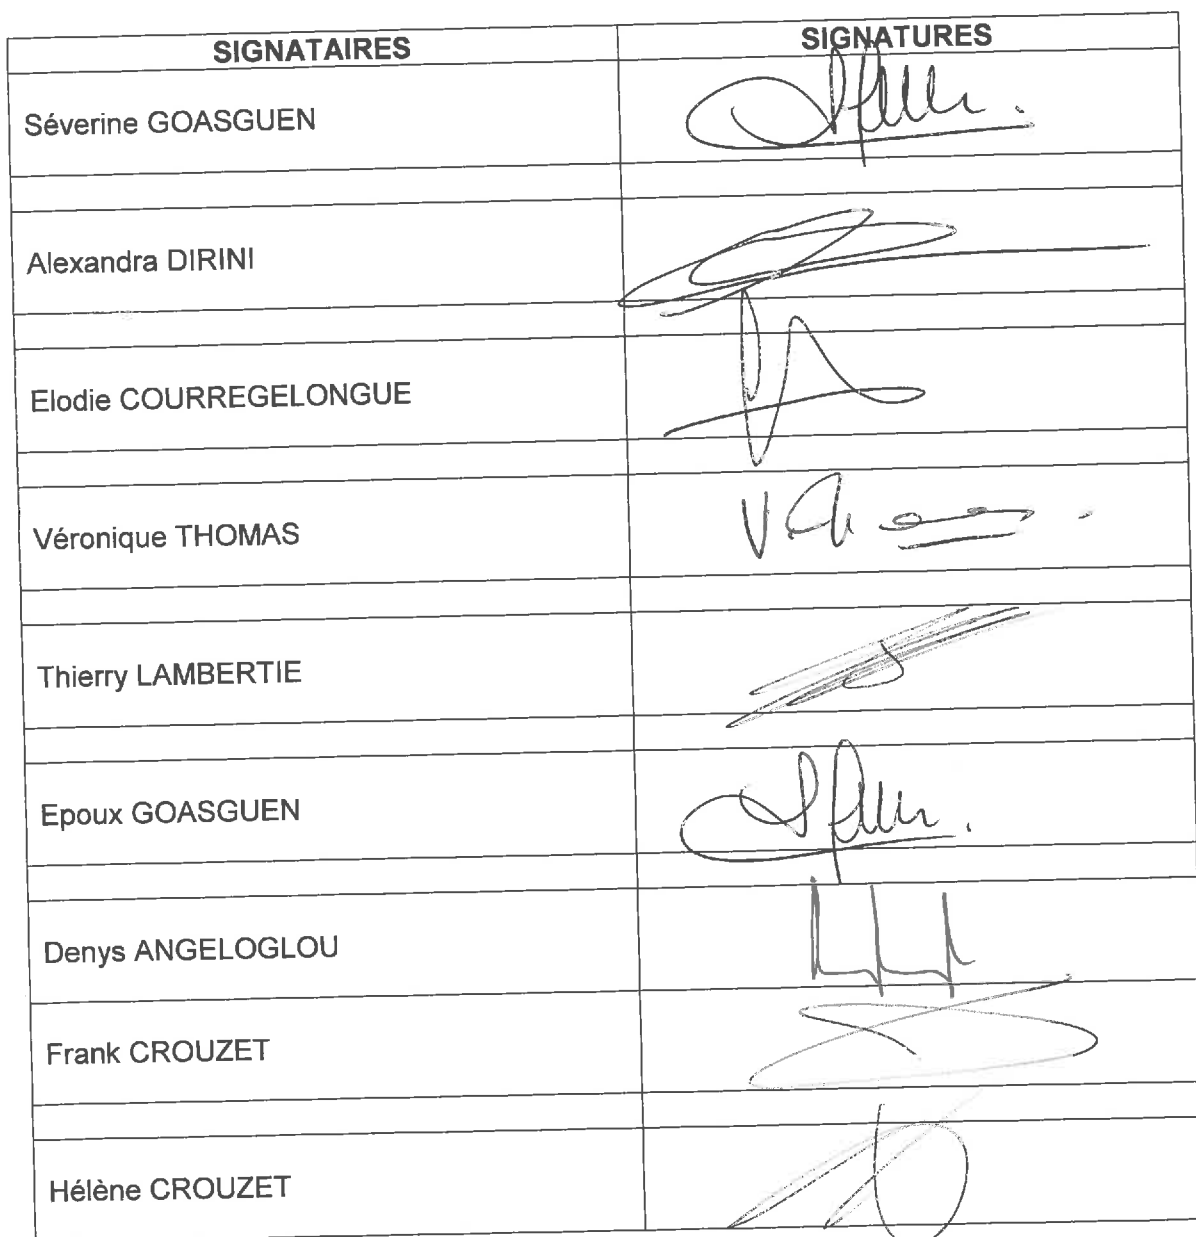 SIGNATAIRES SIGNATURES
Séverine GOASGUEN
Alexandra DIRINI
Elodie COURREGELONGUE
Véronique THOMAS
Thierry LAMBERTIE
Epoux GOASGUEN
Denys ANGELOGLOU
Frank CROUZET
Hélène CROUZET